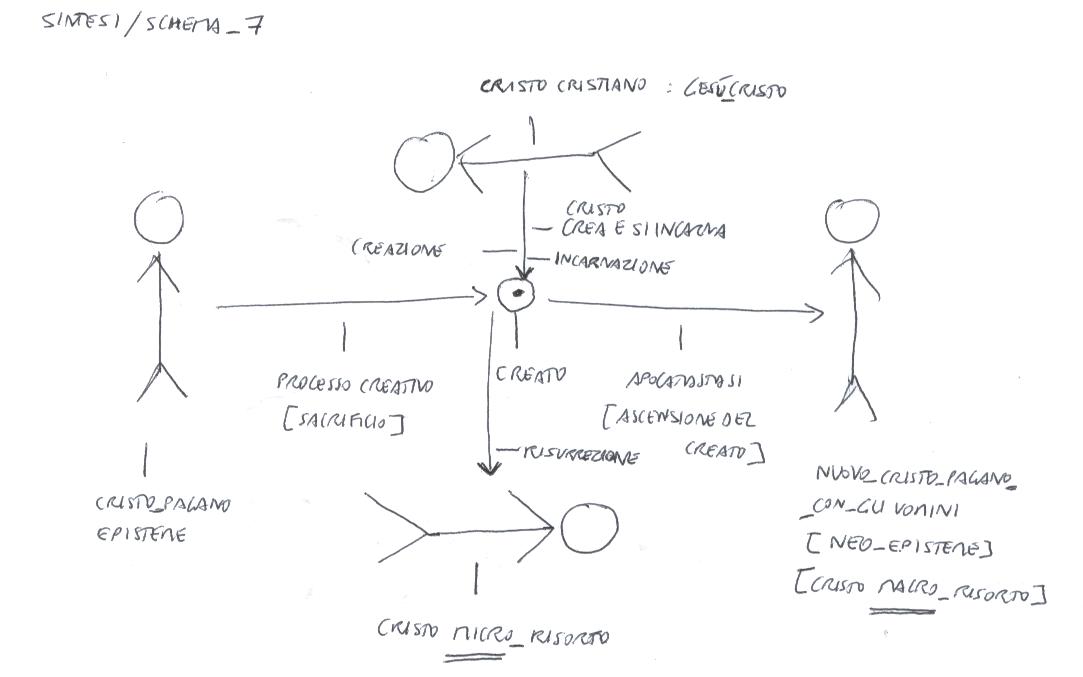 SINTESI/SCHEMA_7
CRISTO CRISTIANO : GESÚCRISTO
CRISTO
CREA E SI INCARNA
CREAZIONE
INCARNAZIONE
PROCESSO CREATIVO
[SACRIFICIO]
CREATO
APOCATASTASI
[ASCENSIONE DEL
CREATO]
RISURREZIONE
CRISTO_PAGANO
EPISTEME
NUOVO_CRISTO_PAGANO_
_CON_GLI UOMINI
[NEO_EPISTEME]
[CRISTO MACRO_RISORTO]
CRISTO MICRO_RISORTO